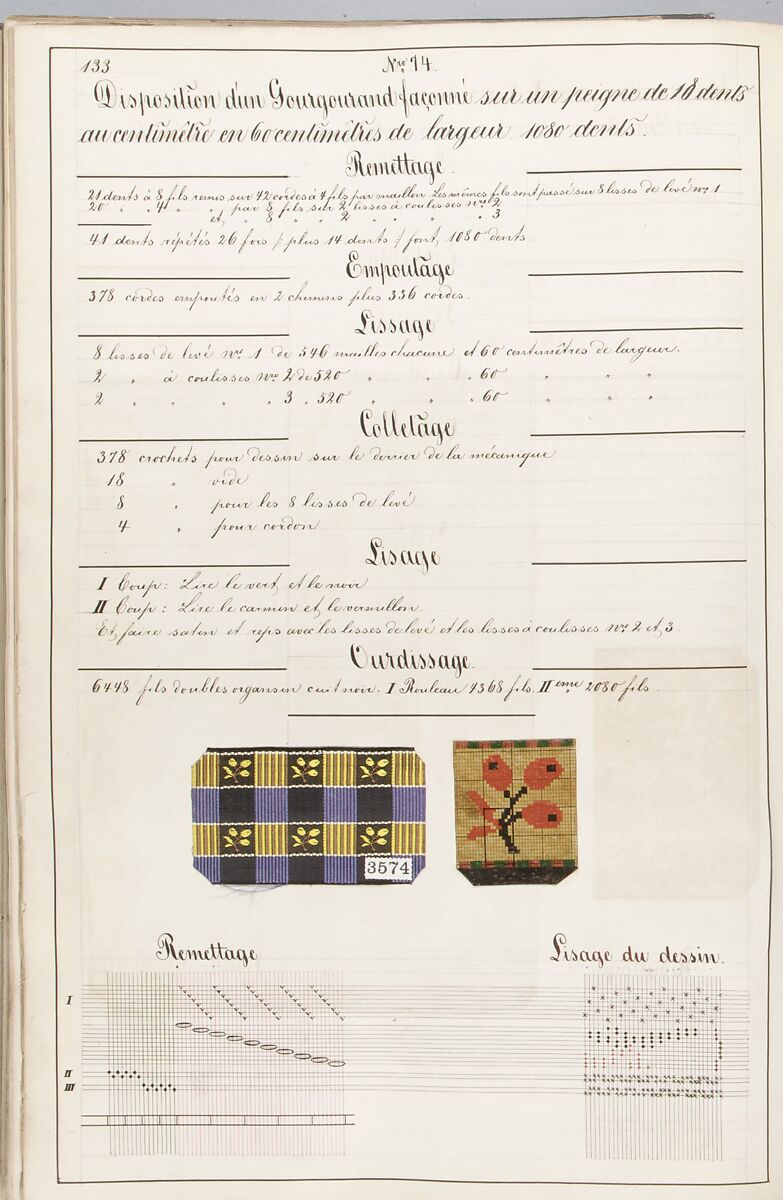 133
Nro 74.
Disposition d'un Gourgourand façonné sur un peigne de 18 dents
au centimètre en 60 centimètres de largeur 1080 dents.
Remettage.
21 dents à 8 fils remis sur 42 cordes à 4 fils par maillon. Les mêmes fils sont passé sur 8 lisses de levé nro 1
20 " " 4 " " par 8 fils sur 2 lisses à coulisses nro 2
et " 8 " " 2 " " " " 3
41 dents répétés 26 fois /: plus 14 dents :/ font 1080 dents.
Empoutage
378 cordes empoutés en 2 chemins plus 336 cordes.
Lissage
8 lisses de levé nro 1 de 546 mailles chacune et 60 centimètres de largeur.
2 " à coulisses nro 2 de 520 " " " 60 " " "
2 " " " " 3 " 520 " " " 60 " " "
Colletage
378 crochets pour dessin sur le derrier de la mécanique
18 " vide
8 " pour les 8 lisses de levé
4 " pour cordon
Lisage
I Coup: Lire le vert et le noir
II Coup: Lire le carmin et le vermillon.
Et faire satin et reps avec les lisses de levé et les lisses à coulisses nro 2 et 3
Ourdissage.
6448 fils doubles organsin cuit noir. I Rouleau 4368 fils. II eme 2080 fils.
3574
Remettage
Lisage du dessin.
I
II
III